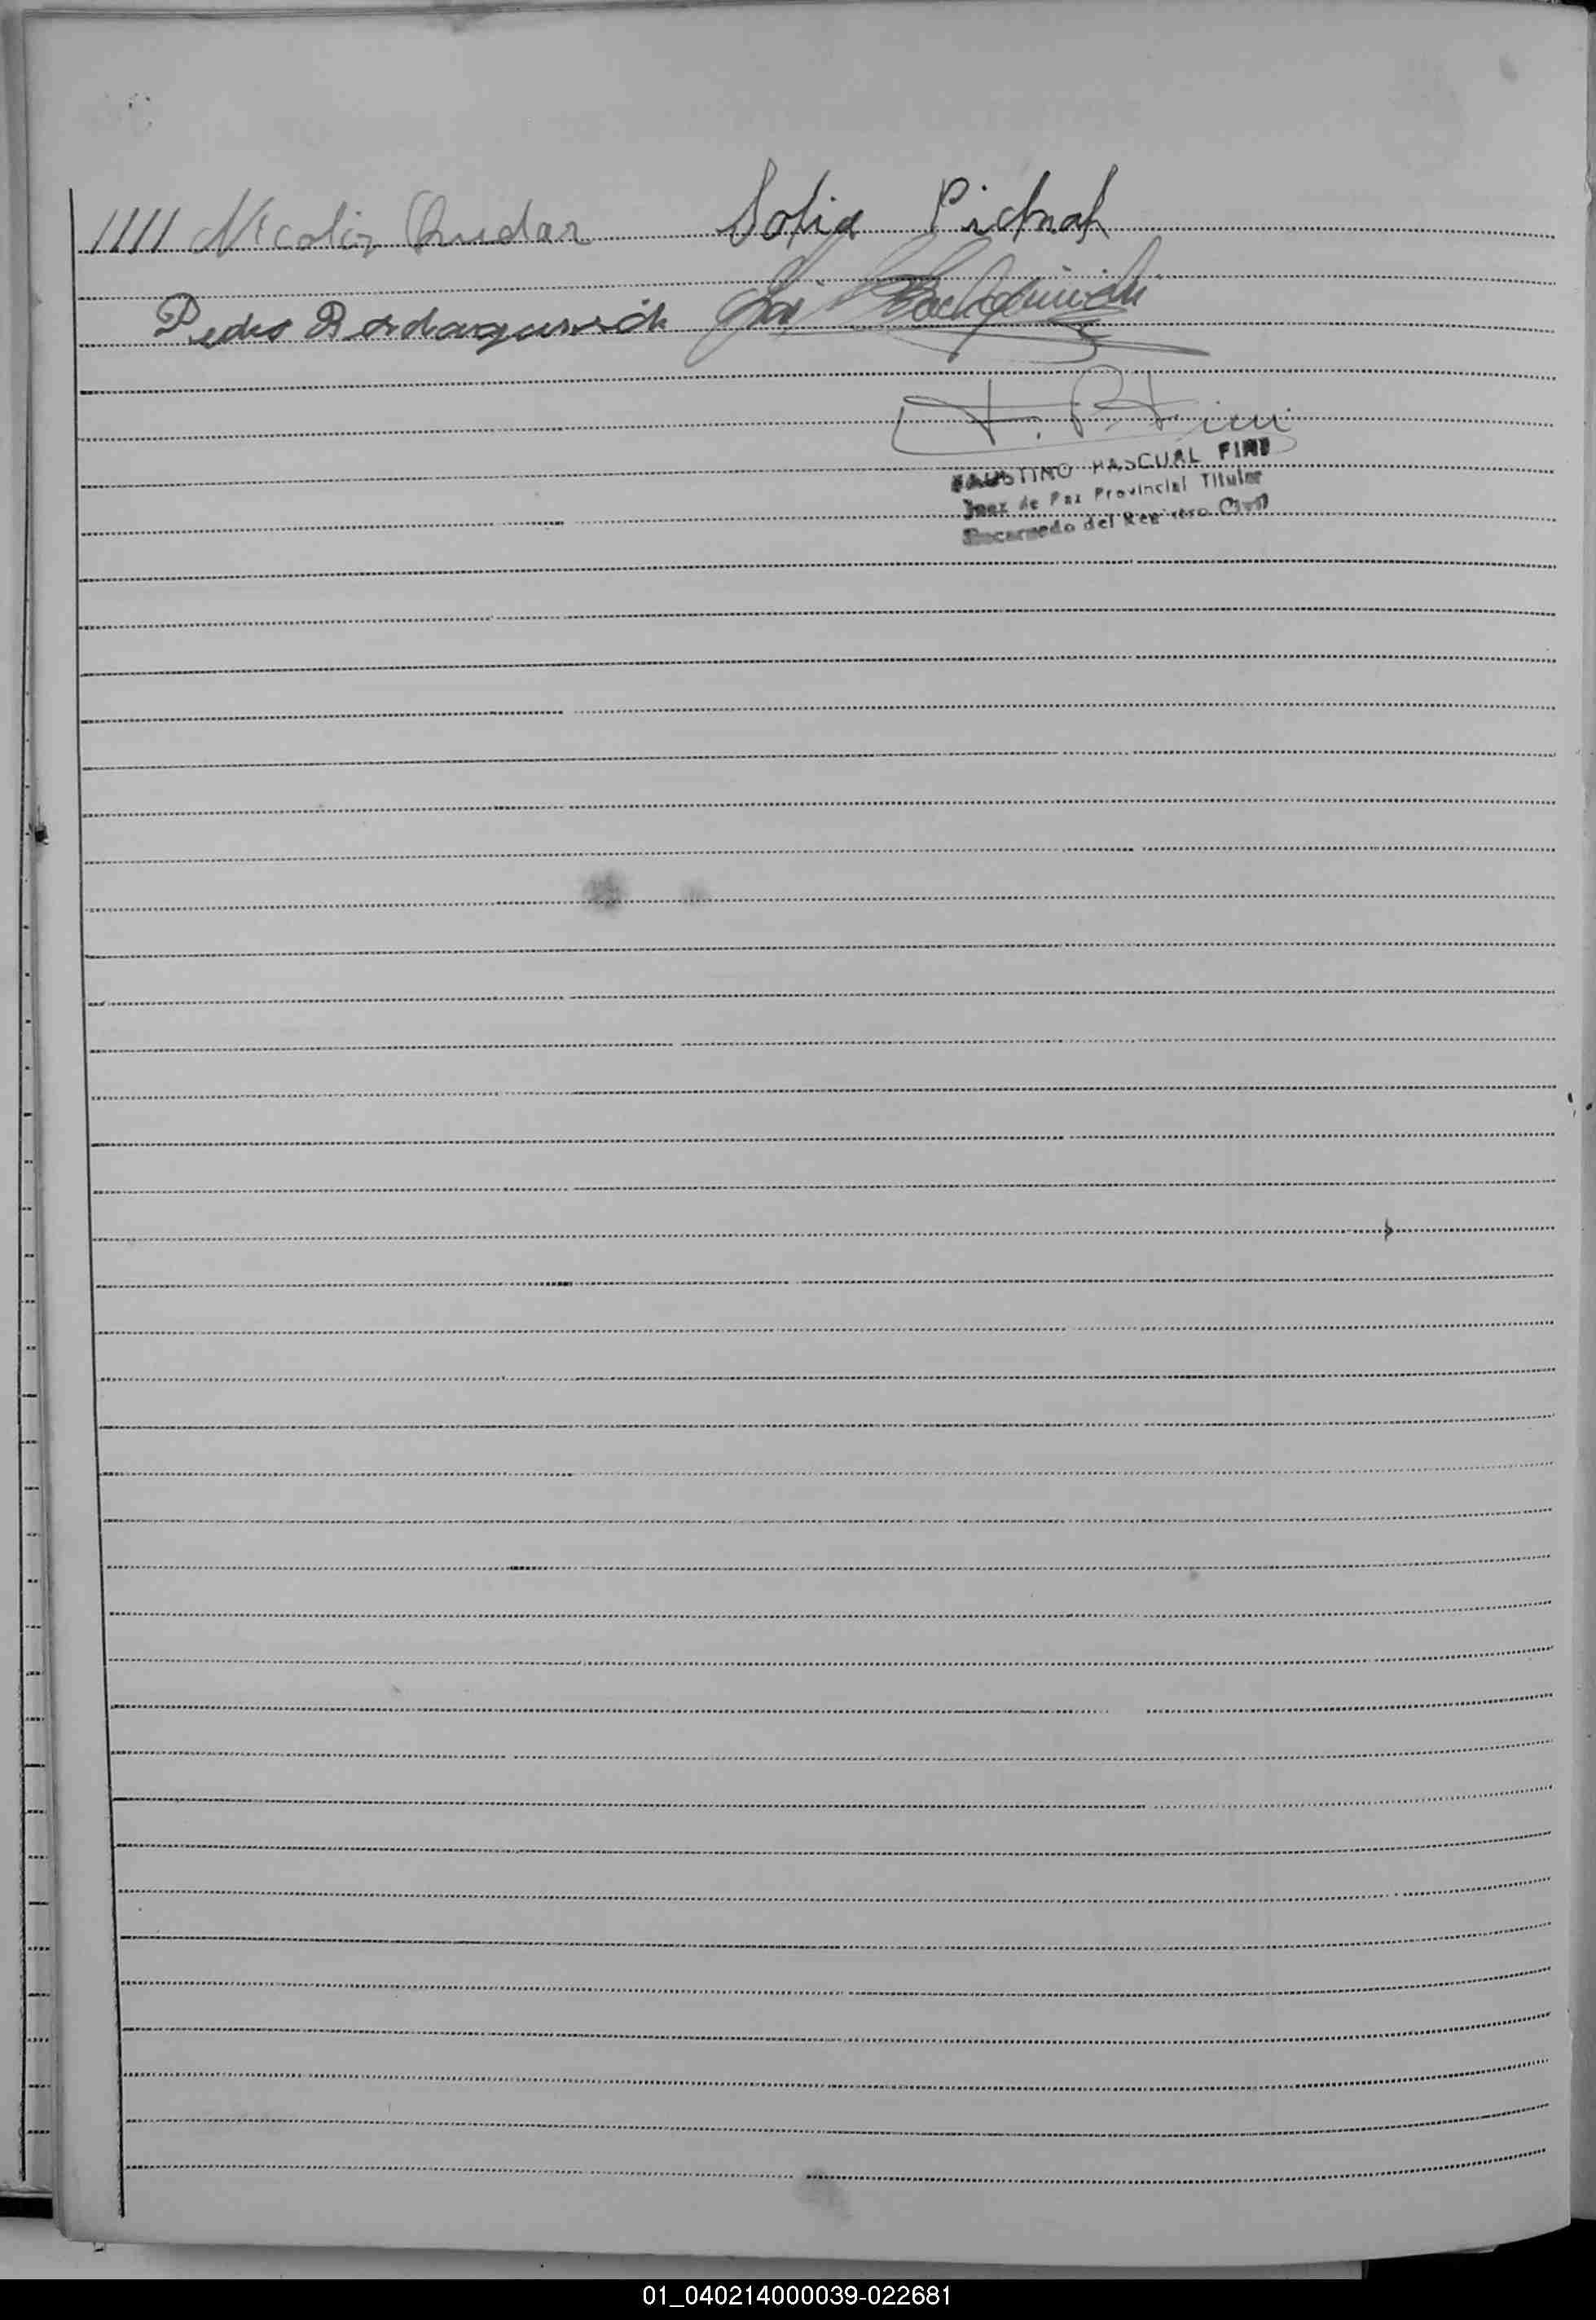 //// Nicolás Rudar Sofia Pichnak
Pedro
F. P. Fini
FAUSTINO PASCUAL FINI
Juez de Paz Provincial Titular
Encargado del Registro Civil
01_040214000039-022681